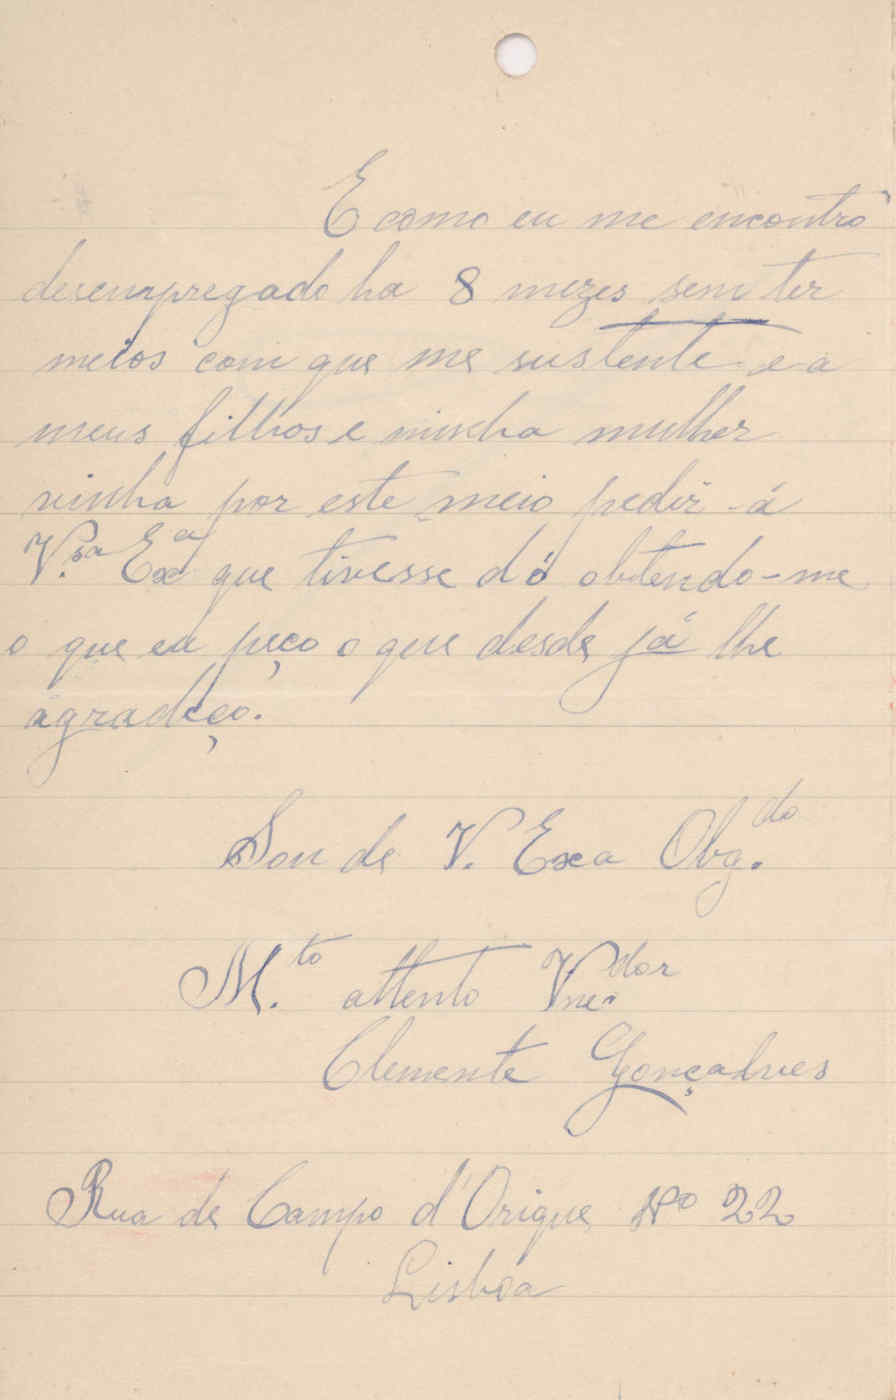 E como eu me encontro
desempregado ha 8 mezes sem ter
meios com que me sustente e a
meus filhos e minha mulher
vinha por este meio pedir á
V.sa Exa que tivesse dó obtendo-me
o que eu peço o que desde já lhe
agradeço.
Sou de V. Exa Obg.do
M.to attento Vne.dor
Clemente Gonçalves
Rua de Campo d'Orique Nº 22
Lisboa